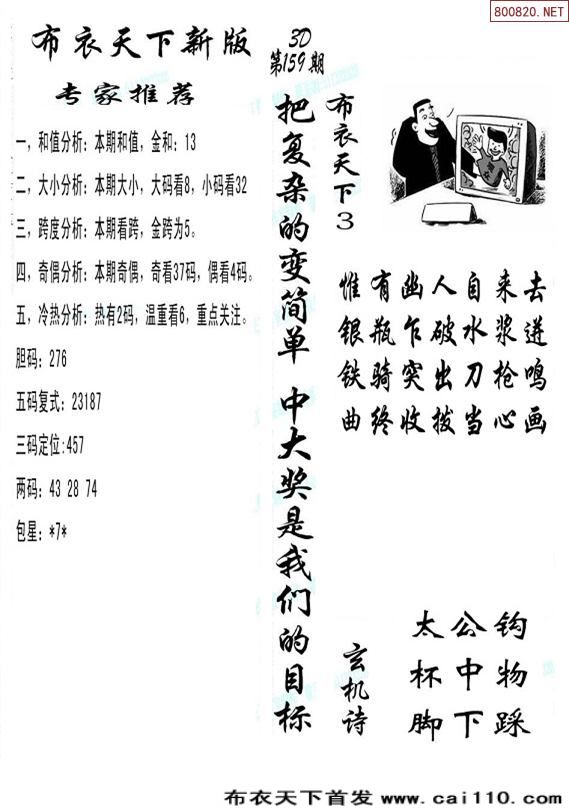 800820.NET
布衣天下新版
专家推荐
一，和值分析：本期和值，金和：13
二，大小分析：本期大小，大码看8，小码看32
三，跨度分析：本期看跨，金跨为5。
四，奇偶分析：本期奇偶，奇看37码，偶看4码。
五，冷热分析：热有2码，温重看6，重点关注。
胆码：276
五码复式：23187
三码定位:457
两码：43 28 74
包星：*7*
3D
第159期
把复杂的变简单 中大奖是我们的目标
布衣天下3
惟有幽人自来去
银瓶乍破水浆迸
铁骑突出刀枪鸣
曲终收拨当心画
玄机诗
太公钩
杯中物
脚下踩
布衣天下首发 www.cai110.com